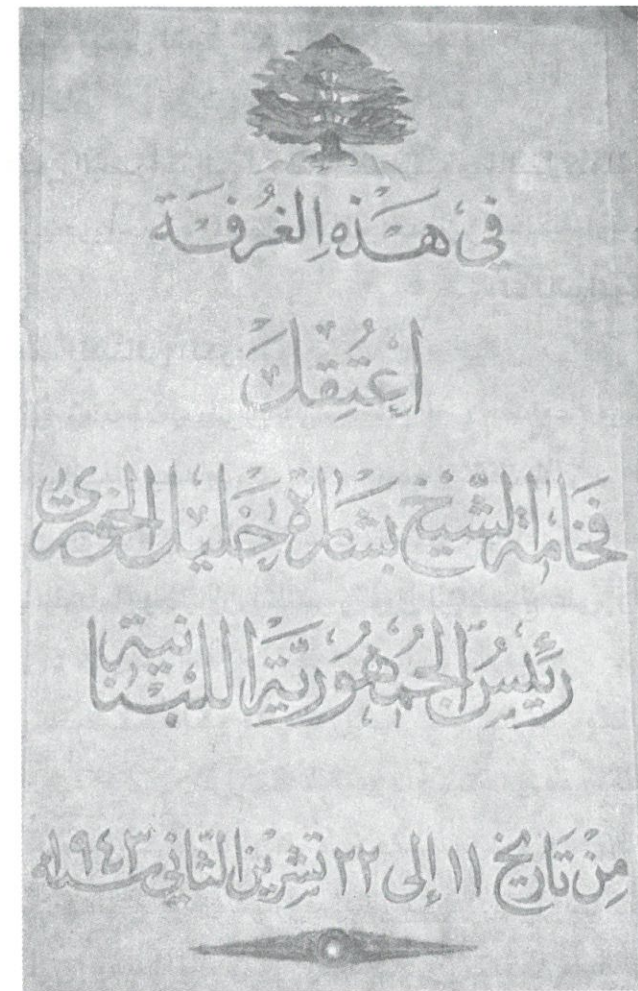 في هَذِهِ الغُرفَة
اعْتُقِلَ
فخامة الشّيخ بشارة خَليل الخوري
رَئيسُ الجُمهُوريَّة اللبنانية
مِنْ تاريخ ١١ إلى ٢٢ تشرين الثّاني سنة ١٩٤٣